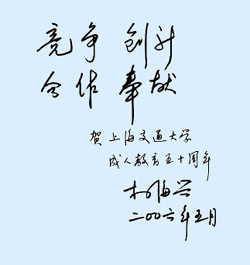 竞争 创新
合作 奉献
贺上海交通大学
成人教育五十周年
二〇〇六年五月